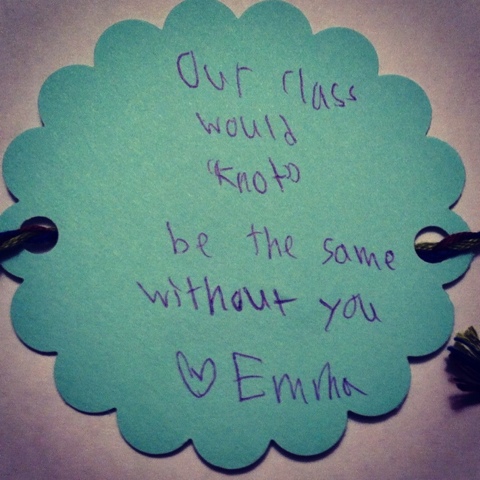 Our class
would
"knot"
be the same
without you
♡ Emma